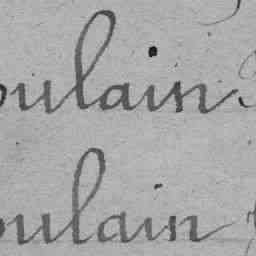 oulain
oulain